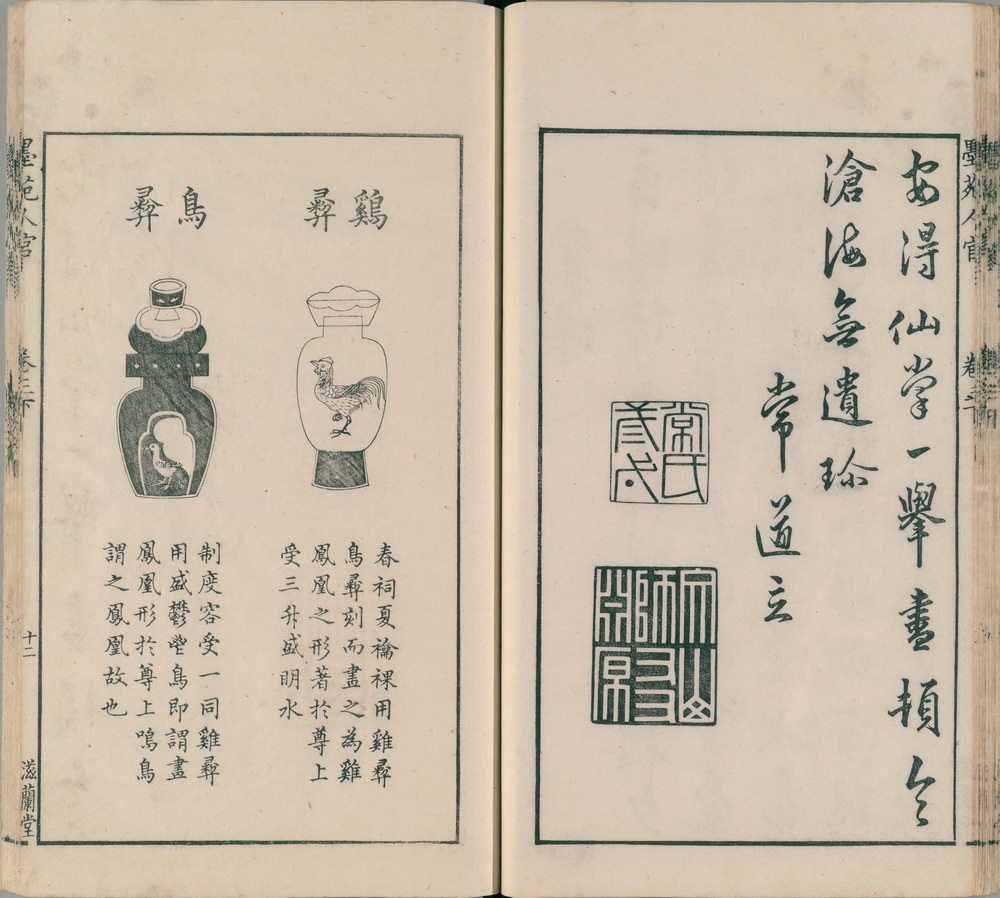 墨苑人官 卷三下
安得仙掌一舉盡頓令
滄海無遺珍
常道立
鷄彝
春祠夏禴祼用雞彝
鳥彝刻而畫之為雞
鳳凰之形著於尊上
受三升盛明水
鳥彝
制度容受一同雞彝
用盛鬱鬯鳥即謂畫
鳳凰形於尊上鳴鳥
謂之鳳凰故也
墨苑人官 卷三下 十二 滋蘭堂